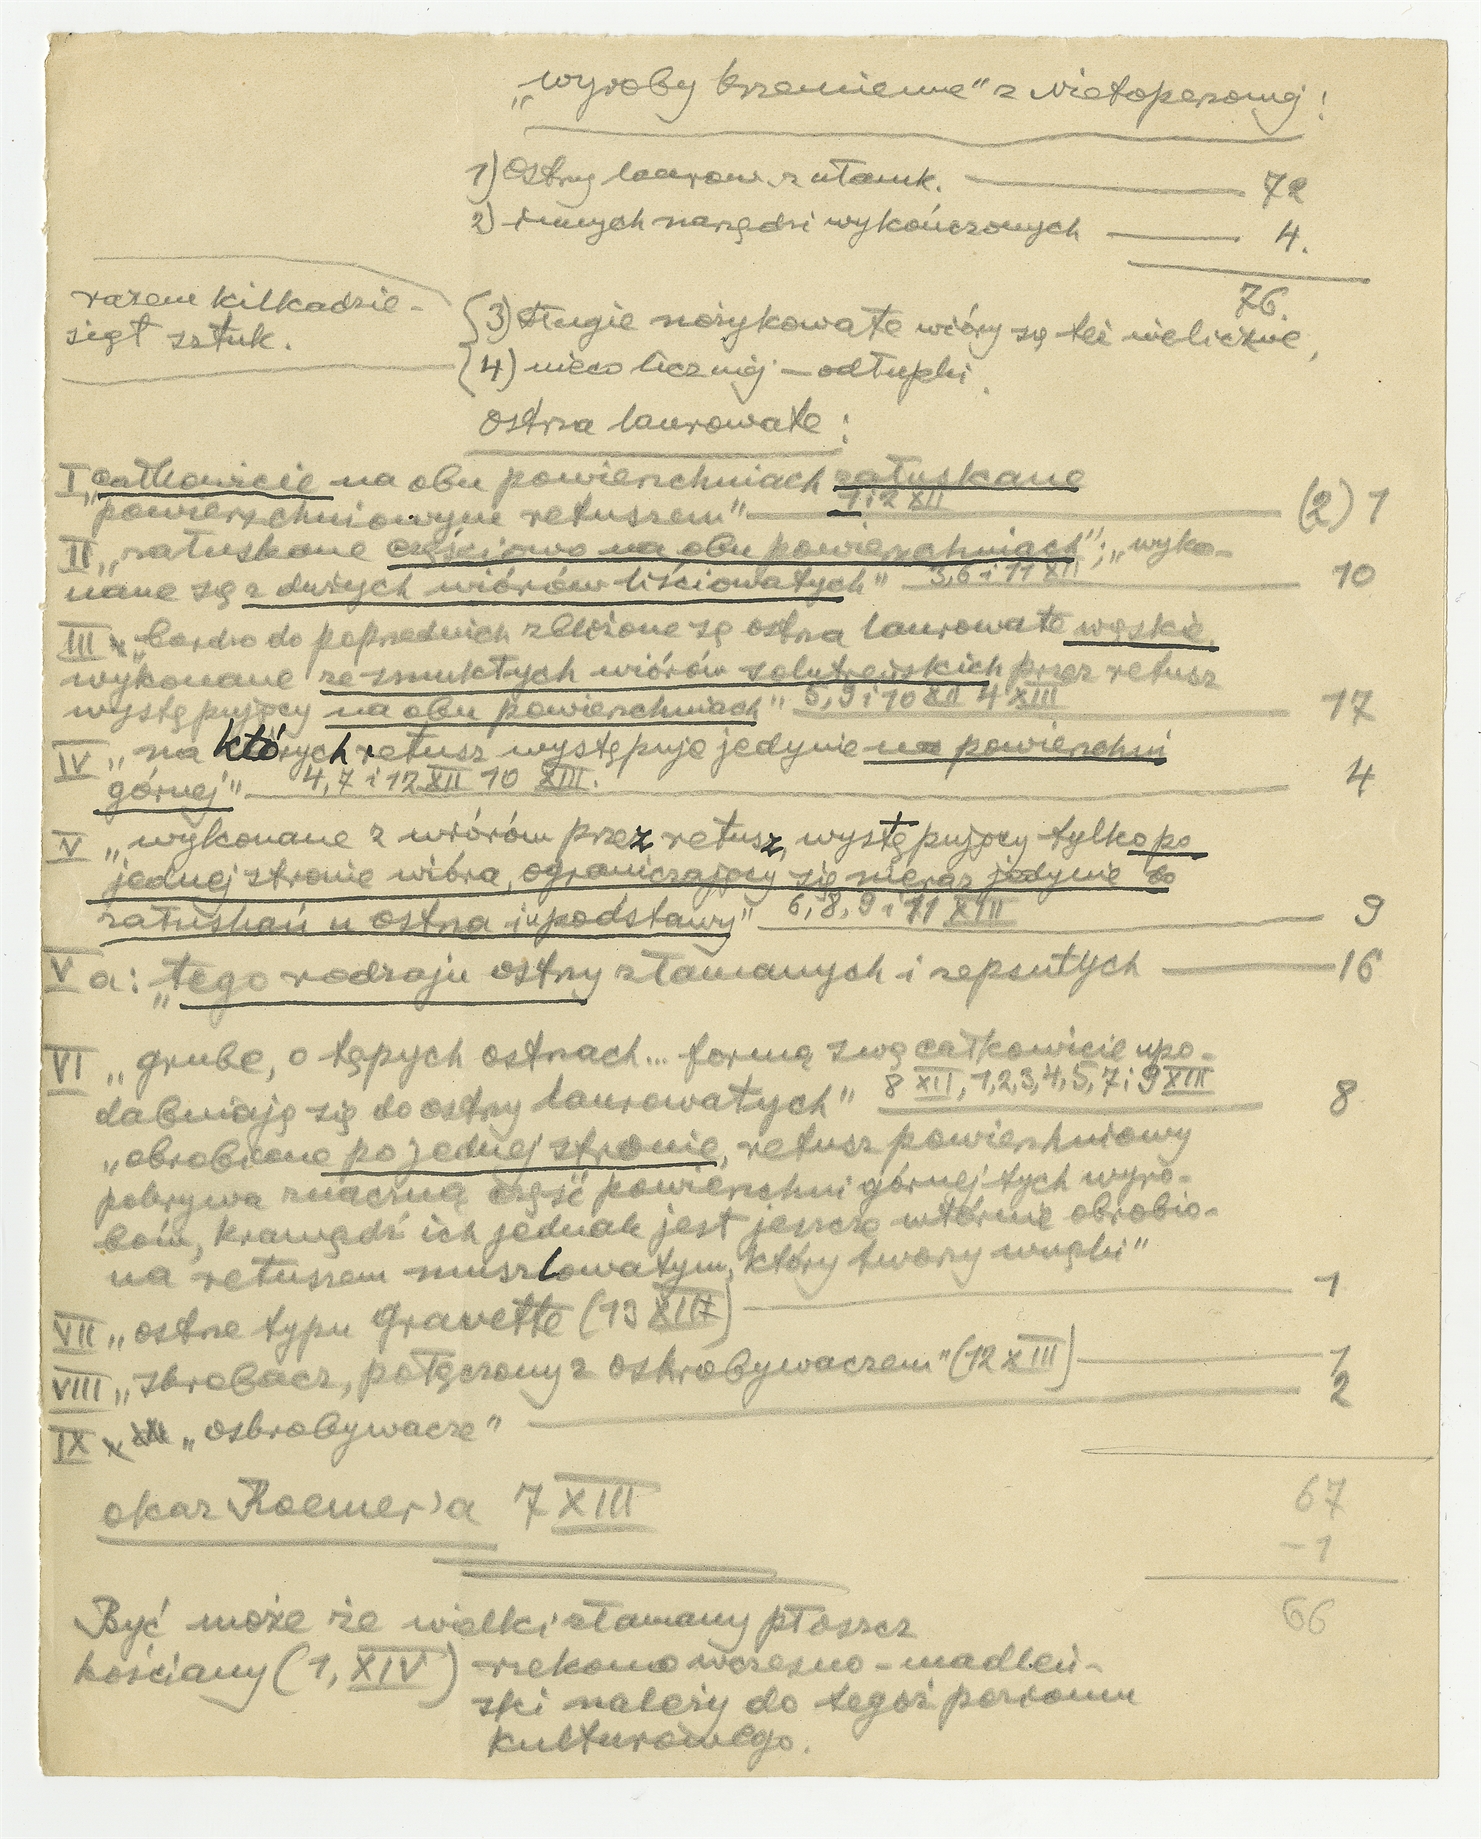 „wyroby krzemienne" z Nietoperzowej!
1) Ostrzy laurow. z ułamk. — 72
2) innych narzędzi wykończonych — 4.
76.
razem kilkadzie-
siąt sztuk.
3) długie nożykowate wióry są też nieliczne,
4) nieco liczniej — odłupki.
Ostrza laurowate:
I „całkowicie na obu powierzchniach załuskane
powierzchniowym retuszem" — 1 i 2 XII — (2) 1
II „załuskane częściowo na obu powierzchniach"; „wyko-
nane są z dużych wiórów liściowatych" 3, 6 i 11 XII — 10
III „bardzo do poprzednich zbliżone są ostrza laurowate wąskie,
wykonane ze smukłych wiórów solutrejskich przez retusz
występujący na obu powierzchniach" 5, 9 i 10 XII 4 XIII — 17
IV „na których retusz występuje jedynie na powierzchni
górnej" — 4, 7 i 12 XII 10 XIII. — 4
V „wykonane z wiórów przez retusz, występujący tylko po
jednej stronie wióra, ograniczający się nieraz jedynie do
załuskań u ostrza i u podstawy" 6, 8, 9 i 11 XIII — 9
V a: „tego rodzaju ostrzy złamanych i zepsutych — 16
VI „grube, o tępych ostrzach... formą swą całkowicie upo-
dabniają się do ostrzy laurowatych" 8 XII, 1, 2, 3, 4, 5, 7 i 9 XIII — 8
„obrobione po jednej stronie, retusz powierzchniowy
pokrywa znaczną część powierzchni górnej tych wyro-
bów, krawędź ich jednak jest jeszcze wtórnie obrobio-
na retuszem muszlowatym, który tworzy wnęki"
VII „ostrze typu Gravette (13 XIII) — 1
VIII „skrobacz, połączony z oskrobywaczem" (12 XIII) — 1
IX „oskrobywacze" — 2
okaz Roemer'a 7 XIII
67
-1
66
Być może że wielki złamany płoszcz
kościany (1, XIV) rzekomo wczesno-madleń-
ski należy do tegoż poziomu
kulturowego.